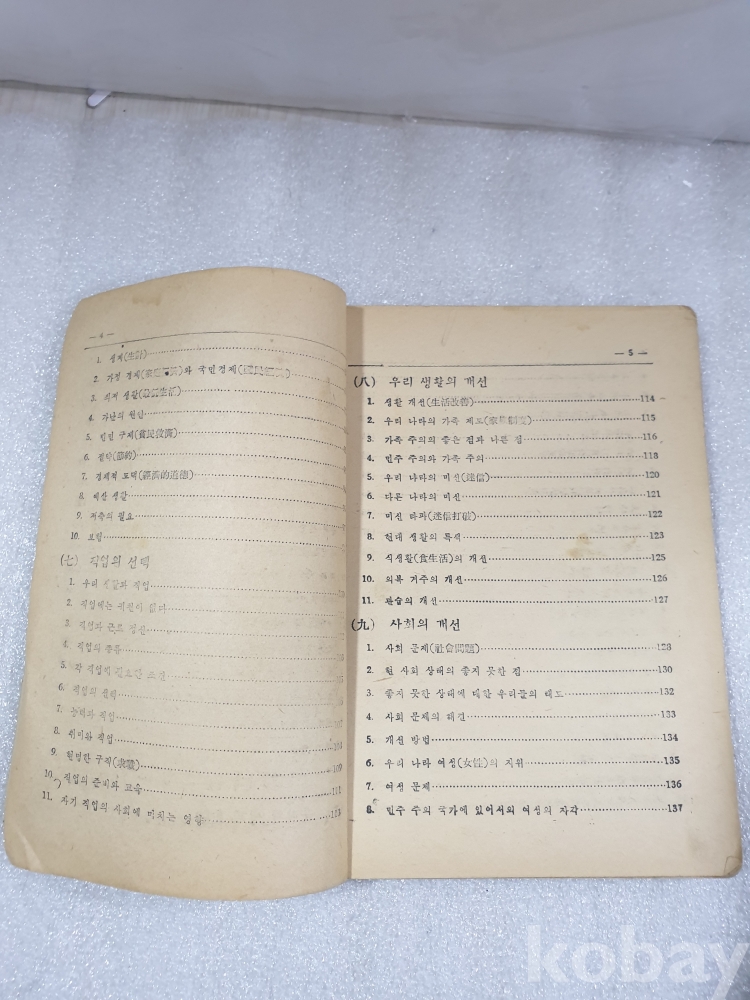 — 4 —
1. 생계(生計)
2. 가정 경제와 국민경제
3. 최저 생활(最低生活)
4. 가난의 원인
5. 빈민 구제(貧民救濟)
6. 절약(節約)
7. 경제적 도덕(經濟的道德)
8. 예산 생활
9. 저축의 필요
10. 보험
(七) 직업의 선택
1. 우리 생활과 직업
2. 직업에는 귀천이 없다
3. 직업과 근로 정신
4. 직업의 종류
5. 각 직업에 필요한 조건
6. 직업의 선택
7. 능력과 직업
8. 취미와 직업
9. 현명한 구직(求職) 109
10. 직업의 준비와 교육 111
11. 자기 직업의 사회에 미치는 영향 113
— 5 —
(八) 우리 생활의 개선
1. 생활 개선(生活改善) 114
2. 우리 나라의 가족 제도(家族制度) 115
3. 가족 주의의 좋은 점과 나쁜 점 116
4. 민주 주의와 가족 주의 118
5. 우리 나라의 미신(迷信) 120
6. 다른 나라의 미신 121
7. 미신 타파(迷信打破) 122
8. 현대 생활의 특색 123
9. 식생활(食生活)의 개선 125
10. 의복 거주의 개선 126
11. 관습의 개선 127
(九) 사회의 개선
1. 사회 문제(社會問題) 128
2. 현 사회 상태의 좋지 못한 점 130
3. 좋지 못한 상태에 대한 우리들의 태도 132
4. 사회 문제의 해결 133
5. 개선 방법 134
6. 우리 나라 여성(女性)의 지위 135
7. 여성 문제 136
8. 민주 주의 국가에 있어서의 여성의 자각 137
kobay